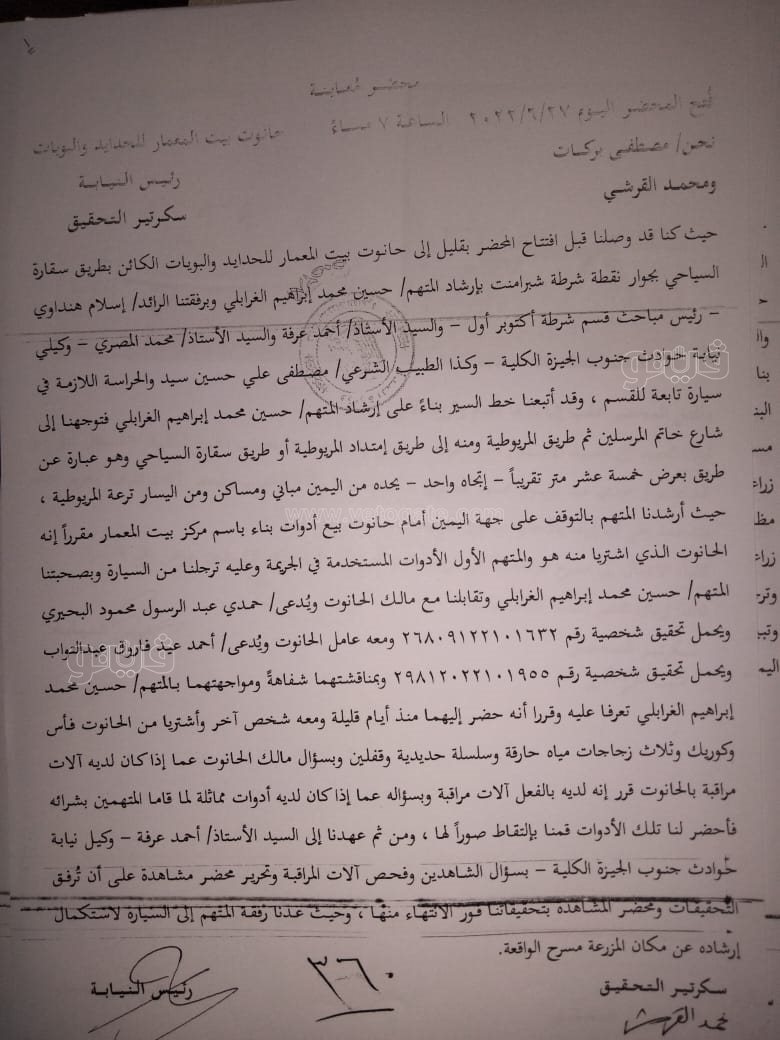 محضر مُعاينة
فُتح المحضر اليوم ٢٠٢٢/٦/٢٧ الساعة ٧ مساءً حانوت بيت المعمار للحدايد والبويات
نحن/ مصطفى بركات
رئيس النيابة
ومحمد القرشي
سكرتير التحقيق
حيث كنا قد وصلنا قبل افتتاح المحضر بقليل إلى حانوت بيت المعمار للحدايد والبويات الكائن بطريق سقارة
السياحي بجوار نقطة شرطة شبرامنت بإرشاد المتهم/ حسين محمد إبراهيم الغرابلي وبرفقتنا الرائد/ إسلام هنداوي
– رئيس مباحث قسم شرطة أكتوبر أول – والسيد الأستاذ/ أحمد عرفة والسيد الأستاذ/ محمد المصري – وكيلي
نيابة حوادث جنوب الجيزة الكلية – وكذا الطبيب الشرعي/ مصطفى علي حسين سيد والحراسة اللازمة في
سيارة تابعة للقسم ، وقد أتبعنا خط السير بناءً على إرشاد المتهم/ حسين محمد إبراهيم الغرابلي فتوجهنا إلى
شارع خاتم المرسلين ثم طريق المريوطية ومنه إلى طريق إمتداد المريوطية أو طريق سقارة السياحي وهو عبارة عن
طريق بعرض خمسة عشر متر تقريباً – إتجاه واحد – يحده من اليمين مباني ومساكن ومن اليسار ترعة المريوطية ،
حيث أرشدنا المتهم بالتوقف على جهة اليمين أمام حانوت بيع أدوات بناء باسم مركز بيت المعمار مقرراً إنه
الحانوت الذي اشتريا منه هو والمتهم الأول الأدوات المستخدمة في الجريمة وعليه ترجلنا من السيارة وبصحبتنا
المتهم/ حسين محمد إبراهيم الغرابلي وتقابلنا مع مالك الحانوت ويُدعى/ حمدي عبد الرسول محمود البحيري
ويحمل تحقيق شخصية رقم ٢٦٨٠٩١٢٢١٠١٦٣٢ ومعه عامل الحانوت ويُدعى/ أحمد عيد فاروق عبدالتواب
ويحمل تحقيق شخصية رقم ٢٩٨١٢٠٢٢١٠١٩٥٥ وبمناقشتهما شفاهةً ومواجهتهما بالمتهم/ حسين محمد
إبراهيم الغرابلي تعرفا عليه وقررا أنه حضر إليهما منذ أيام قليلة ومعه شخص آخر وأشتريا من الحانوت فأس
وكوريك وثلاث زجاجات مياه حارقة وسلسلة حديدية وقفلين وبسؤال مالك الحانوت عما إذا كان لديه آلات
مراقبة بالحانوت قرر إنه لديه بالفعل آلات مراقبة وبسؤاله عما إذا كان لديه أدوات مماثلة لما قاما المتهمين بشرائه
فأحضر لنا تلك الأدوات قمنا بإلتقاط صوراً لها ، ومن ثم عهدنا إلى السيد الأستاذ/ أحمد عرفة – وكيل نيابة
حوادث جنوب الجيزة الكلية – بسؤال الشاهدين وفحص آلات المراقبة وتحرير محضر مشاهدة على أن تُرفق
التحقيقات ومحضر المشاهده بتحقيقاتنا فور الانتهاء منها ، وحيث عدنا رفقة المتهم إلى السيارة لاستكمال
إرشاده عن مكان المزرعة مسرح الواقعة.
سكرتير التحقيق
رئيس النيابة
٣٦٠
محمد القرشي
فايتو
www.vetogate.com
فايتو